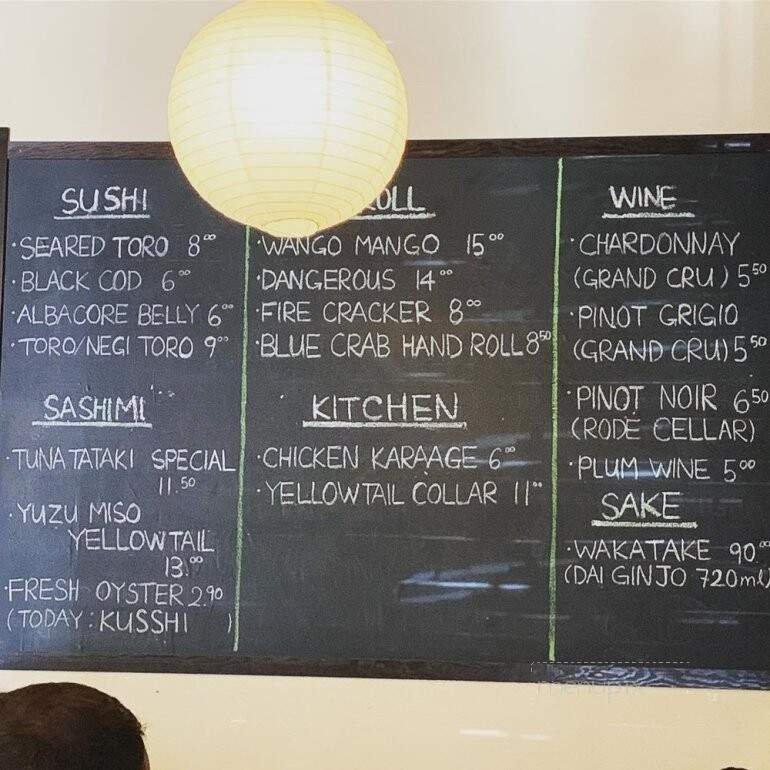 SUSHI
· SEARED TORO 8.00
· BLACK COD 6.00
· ALBACORE BELLY 6.00
· TORO/NEGI TORO 9.00
SASHIMI
· TUNA TATAKI SPECIAL
11.50
· YUZU MISO
YELLOWTAIL
13.00
· FRESH OYSTER 2.90
(TODAY: KUSSHI )
· WANGO MANGO 15.00
· DANGEROUS 14.00
· FIRE CRACKER 8.00
· BLUE CRAB HAND ROLL 8.50
KITCHEN
· CHICKEN KARAAGE 6.00
· YELLOWTAIL COLLAR 11.00
WINE
· CHARDONNAY
(GRAND CRU) 5.50
· PINOT GRIGIO
(GRAND CRU) 5.50
· PINOT NOIR 6.50
(RODE CELLAR)
· PLUM WINE 5.00
SAKE
· WAKATAKE 90.00
(DAI GINJO 720ml)